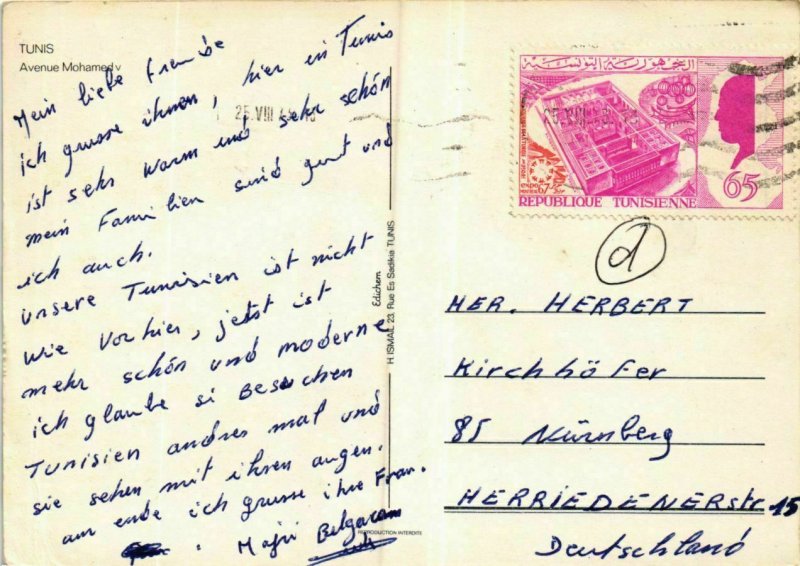 TUNIS
Avenue Mohamed V
Mein liebe Freunde
ich grusse ihnen, hier in Tunis
ist sehr warm und sehr schön
mein Familien sind gut und
ich auch.
unsere Tunisien ist nicht
wie Vorhier, jetzt ist
mehr schön und moderne
ich glaube si Besuchen
Tunisien andres mal und
sie sehen mit ihren augen.
am ende ich grusse ihre Frau.
Majri Belgacem
Edichem
H. ISMAIL 23, Rue Es Sadikia TUNIS
REPRODUCTION INTERDITE
25.VIII
الجمهورية التونسية
expo
67
65
REPUBLIQUE TUNISIENNE
d
HER. HERBERT
Kirchhöfer
85 Nürnberg
HERRIEDENERstr 15
Deutschland